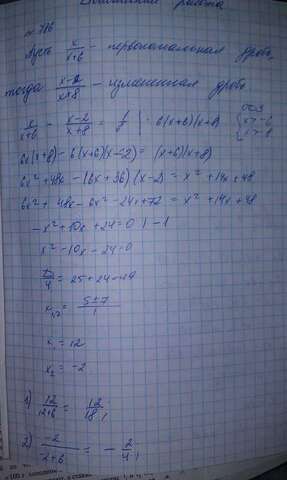 работа
№ 786
Пусть x/(x+6) - первоначальная дробь,
тогда (x-2)/(x+8) - измененная дробь
x/(x+6) - (x-2)/(x+8) = 1/6 | · 6(x+6)(x+8)
6x(x+8) - 6(x+6)(x-2) = (x+6)(x+8)
6x² + 48x - (6x + 36)(x-2) = x² + 14x + 48
6x² + 48x - 6x² - 24x + 72 = x² + 14x + 48
-x² + 10x + 24 = 0 | · -1
x² - 10x - 24 = 0
D/4 = 25 + 24 = 49
x₁,₂ = (5±7)/1
x₁ = 12
x₂ = -2
1) 12/(12+6) = 12/18 ;
2) -2/(-2+6) = - 2/4 ;